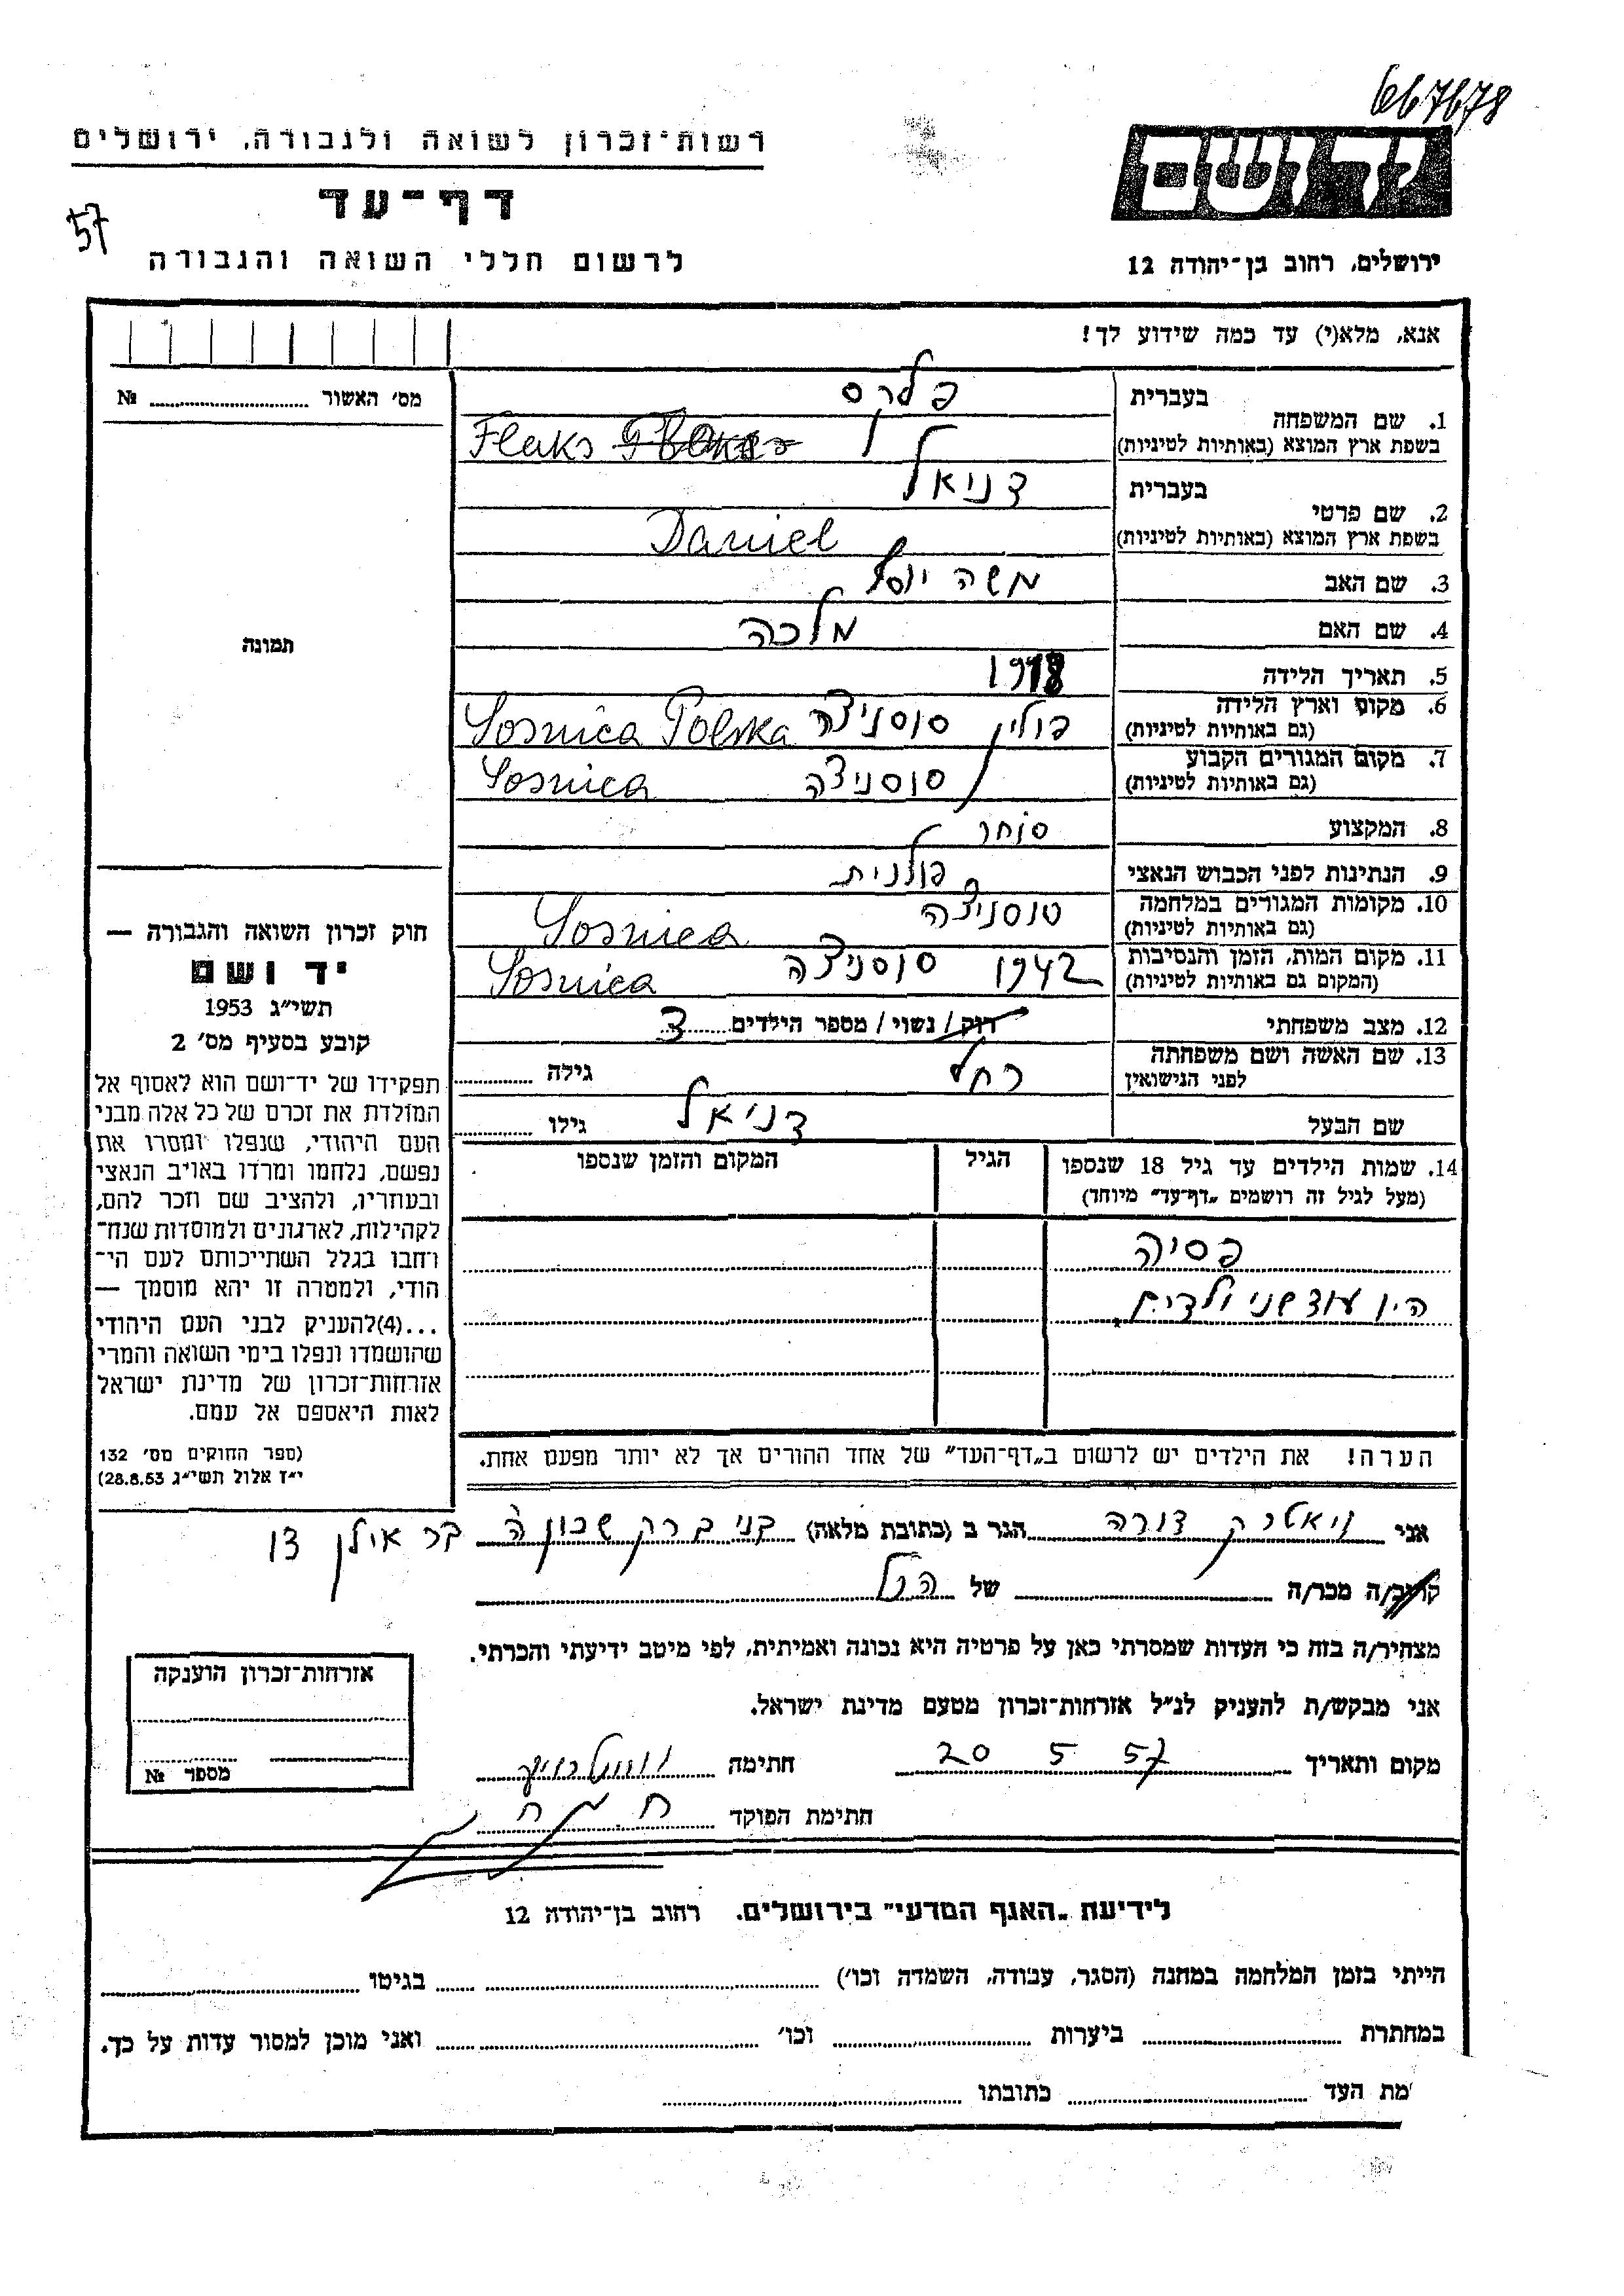 667678
רשות־זכרון לשואה ולגבורה, ירושלים
דף־עד
57
לרשום חללי השואה והגבורה
ידושם
ירושלים, רחוב בן־יהודה 12
אנא, מלא(י) עד כמה שידוע לך!
מס׳ האשור № 
תמונה
1. שם המשפחה
בעברית
פלקס
בשפת ארץ המוצא (באותיות לטיניות)
Flaks
2. שם פרטי
בעברית
דניאל
בשפת ארץ המוצא (באותיות לטיניות)
Daniel
3. שם האב משה יוסף
4. שם האם מלכה
5. תאריך הלידה 1918
6. מקום וארץ הלידה
(גם באותיות לטיניות)
פולין סוסניצה Sosnica Polska
7. מקום המגורים הקבוע
(גם באותיות לטיניות)
סוסניצה Sosnica
8. המקצוע סוחר
9. הנתינות לפני הכבוש הנאצי פולנית
10. מקומות המגורים במלחמה
(גם באותיות לטיניות)
סוסניצה Sosnica
11. מקום המות, הזמן והנסיבות
(המקום גם באותיות לטיניות)
1942 סוסניצה Sosnica
12. מצב משפחתי רוק/ נשוי/ מספר הילדים 3
13. שם האשה ושם משפחתה
לפני הנישואין
רחל גילה
שם הבעל דניאל גילו
14. שמות הילדים עד גיל 18 שנספו
(מעל לגיל זה רושמים „דף־עד״ מיוחד)
הגיל
המקום והזמן שנספו
פסיה
היו עוד שני ילדים
הערה! את הילדים יש לרשום ב„דף־העד״ של אחד ההורים אך לא יותר מפעם אחת.
חוק זכרון השואה והגבורה —
יד ושם
תשי״ג 1953
קובע בסעיף מס׳ 2
תפקידו של יד־ושם הוא לאסוף אל
המולדת את זכרם של כל אלה מבני
העם היהודי, שנפלו ומסרו את
נפשם, נלחמו ומרדו באויב הנאצי
ובעוזריו, ולהציב שם וזכר להם,
לקהילות, לארגונים ולמוסדות שנח־
רחבו בגלל השתייכותם לעם הי־
הודי, ולמטרה זו יהא מוסמך —
...(4)להעניק לבני העם היהודי
שהושמדו ונפלו בימי השואה והמרי
אזרחות־זכרון של מדינת ישראל
לאות היאספם אל עמם.
(ספר החוקים מס׳ 132
י״ז אלול תשי״ג 28.8.53)
אני ויאטרק דורה הגר ב (כתובת מלאה) בני ברק שכון ה׳ בר אילן 31
קרוב/ה מכר/ה של הנ״ל
מצהיר/ה בזה כי העדות שמסרתי כאן על פרטיה היא נכונה ואמיתית, לפי מיטב ידיעתי והכרתי.
אני מבקש/ת להעניק לנ״ל אזרחות־זכרון מטעם מדינת ישראל.
מקום ותאריך 20 5 57 חתימה
חתימת הפוקד
אזרחות־זכרון הוענקה
מספר №
לידיעת „האגף המדעי״ בירושלים. רחוב בן־יהודה 12
הייתי בזמן המלחמה במחנה (הסגר, עבודה, השמדה וכו׳) בגיטו
במחתרת ביערות וכו׳ ואני מוכן למסור עדות על כך.
מת העד כתובתו